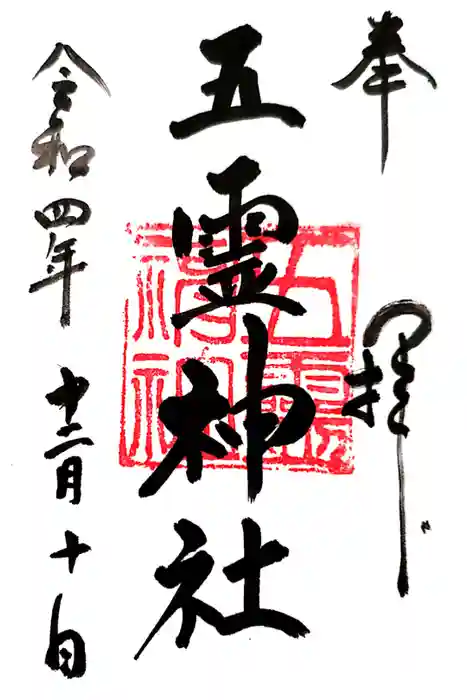 奉拝
五霊神社
五靈神社
令和四年十二月十日